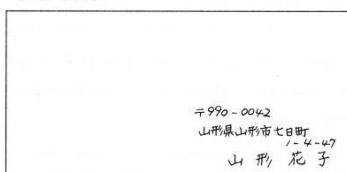 〒990-0042
山形県山形市七日町
1-4-47
山形 花子